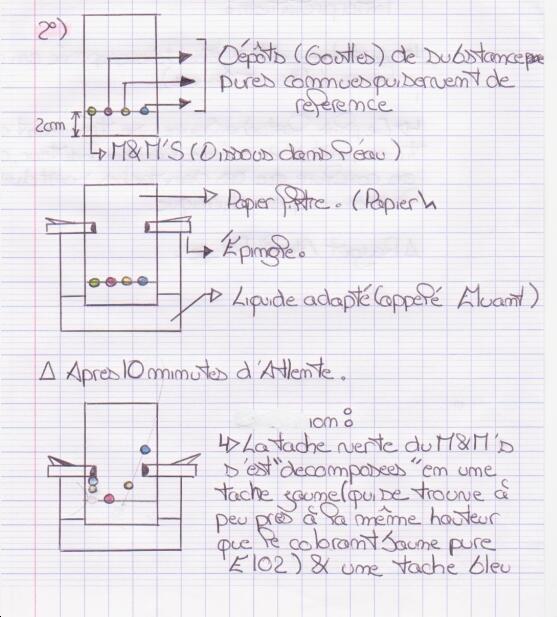 2°)
Dépôts (Gouttes) de substance
pures connues qui servent de
reference
2cm
M&M'S (Dissous dans l'éau)
Papier filtre. (Papier
Épingle.
Liquide adapté (appelé Eluant)
Δ Apres 10 minutes d'Attente.
ion :
↳ La tache verte du M&M's
s'est "decomposees" en une
tache jaune (qui se trouve à
peu près à la même hauteur
que le colorant Jaune pure
E102) & une tache bleu